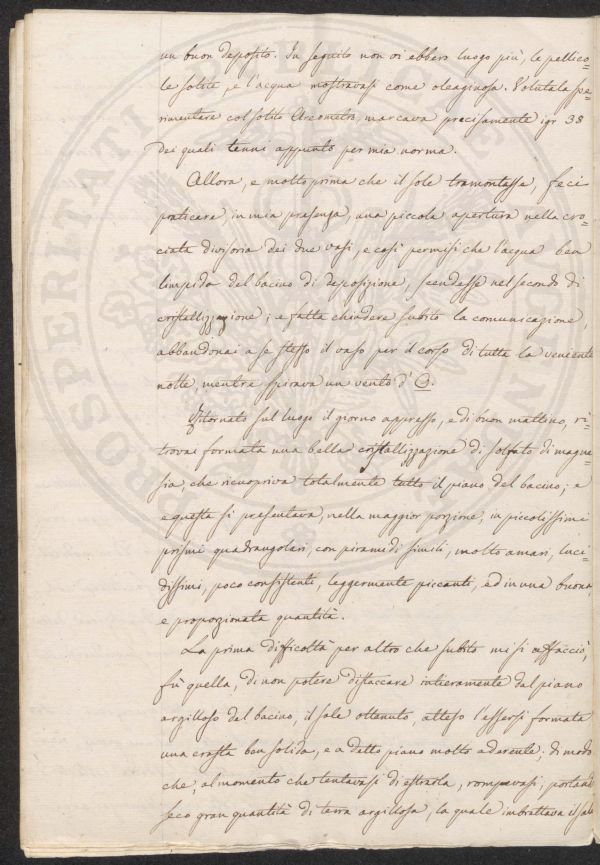 un buon deposito. In seguito non vi ebbero luogo più, le pellico=
le solite, e l'acqua mostravasi come oleaginosa. Volutala spe=
rimentare col solito Areometro, marcava precisamente igr 38
dei quali tenni appunto per mia norma.
Allora, e molto prima che il sole tramontasse, feci
praticare, in mia presenza, una piccola apertura nella cro=
ciata divisoria dei due vasi, e così permisi che l'acqua ben
limpida del bacino di deposizione, scendesse nel secondo di
cristallizzazione; e fatta chiudere subito la comunicazione,
abbandonai a se stesso il vaso per il corso di tutta la veniente
notte, mentre spirava un vento d' O.
Ritornato sul luogo il giorno appresso, e di buon mattino, ri=
trovai formata una bella cristallizzazione di solfato di magne=
sia, che ricuopriva totalmente tutto il piano del bacino; e
questa si presentava, nella maggior porzione, in piccolissimi
prismi quadrangolari, con piramidi simili, molto amari, luci=
dissimi, poco consistenti, leggermente piccanti, ed in una buona,
e proporzionata quantità.
La prima difficoltà per altro che subito mi si affacciò,
fù quella, di non potere distaccare intieramente dal piano
argilloso del bacino, il sale ottenuto, atteso l'essersi formata
una crosta ben solida, e a detto piano molto aderente; di modo
che, al momento che tentavasi di estrarla, rompevasi, portando
seco gran quantità di terra argillosa, la quale imbrattava il sale
PROSPERITATI